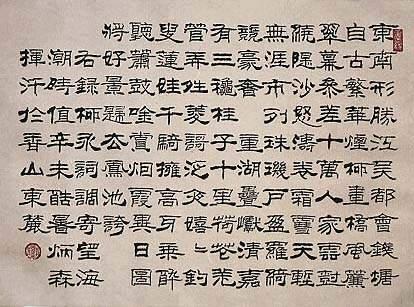 東南形勝江吳都會錢塘
自古繁華煙柳畫橋風簾
翠幕參差十萬人家雲樹
繞隄沙怒濤卷霜雪天塹
無涯市列珠璣戶盈羅綺
競豪奢重湖疊巘清嘉
有三穐桂子十里荷花羌
管弄晴菱歌泛夜嬉〻釣
叟蓮娃千騎擁高牙乘醉
聽簫鼓吟賞煙霞異日圖
將好景歸去鳳池誇
右錄柳永詞調寄望海
潮時值辛未酷暑炳森
揮汗於香山東麓